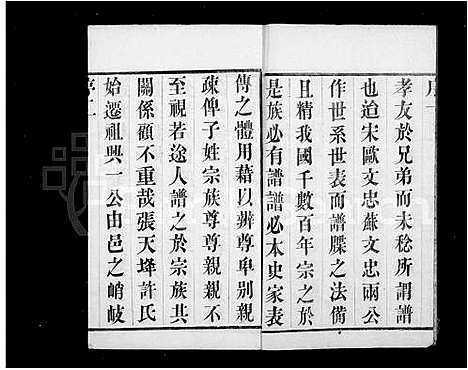 序一
孝友於兄弟而未稔所謂譜
也迨宋歐文忠蘇文忠兩公
作世系世表而譜牒之法備
且精我國千數百年宗之於
是族必有譜譜必本史家表
傳之體用藉以辨尊卑別親
疎俾子姓宗族尊尊親親不
至視若途人譜之於宗族其
關係顧不重哉張天墿許氏
始遷祖興一公由邑之峭岐
序二